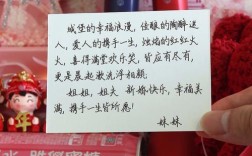 城堡的幸福浪漫,佳酿的陶醉迷
人,爱人的携手一生,烛焰的红红火
火,喜得满堂欢乐笑,皆应有尽有,
更是晨起敝洗浮相颜,
姐姐,姐夫 新婚快乐,幸福美
满,携手一生皆所愿!
——妹妹